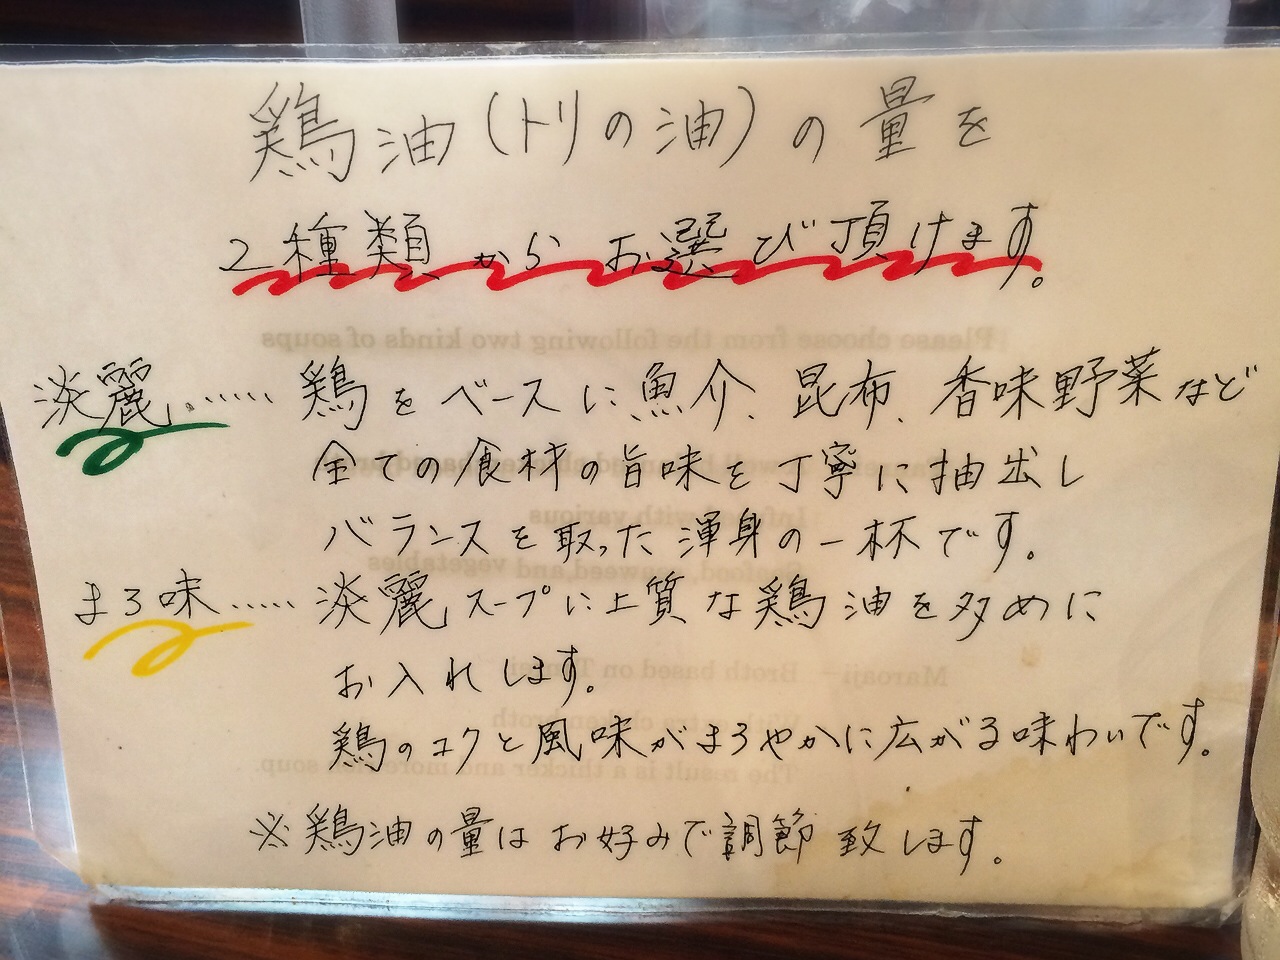 鶏油(トリの油)の量を
2種類からお選び頂けます。
淡麗……鶏をベースに魚介、昆布、香味野菜など
全ての食材の旨味を丁寧に抽出し
バランスを取った渾身の一杯です。
まろ味……淡麗スープに上質な鶏油を多めに
お入れします。
鶏のコクと風味がまろやかに広がる味わいです。
※鶏油の量はお好みで調節致します。
Please choose from the following two kinds of soups
Infused with various
Seafood, seaweed, and vegetables
Maroaji – Broth based on
The result is a thicker and more rich soup.